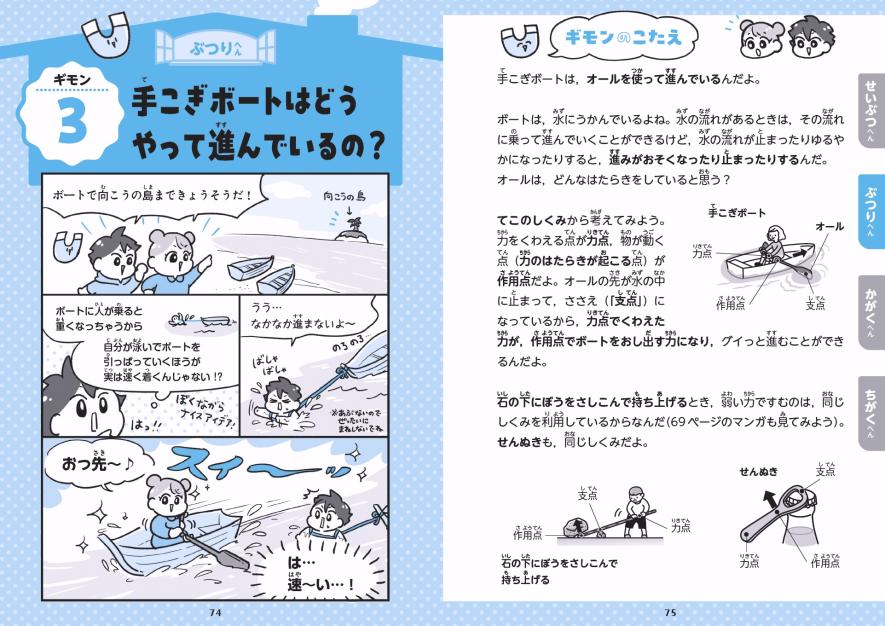 ぶつりへん
ギモン
3
手こぎボートはどう
やって進んでいるの？
ボートで向こうの島まできょうそうだ！
向こうの島
ボートに人が乗ると
重くなっちゃうから
自分が泳いでボートを
引っぱっていくほうが
実は速く着くんじゃない!?
ぼくながら
ナイスアイデア!
はっ!!
うう…
なかなか進まないよ〜
のろのろ…
ばしゃ
ばしゃ
※あぶないので
ぜったいに
まねしないでね
おっ先〜♪
スイーーッ
は…
速〜い…！
74
ギモンのこたえ
手こぎボートは，オールを使って進んでいるんだよ。
ボートは，水にうかんでいるよね。水の流れがあるときは，その流れ
に乗って進んでいくことができるけど，水の流れが止まったりゆるや
かになったりすると，進みがおそくなったり止まったりするんだ。
オールは，どんなはたらきをしていると思う？
てこのしくみから考えてみよう。
力をくわえる点が力点，物が動く
点（力のはたらきが起こる点）が
作用点だよ。オールの先が水の中
に止まって，ささえ（「支点」）に
なっているから，力点でくわえた
力が，作用点でボートをおし出す力になり，グイっと進むことができ
るんだよ。
手こぎボート
オール
力点
作用点
支点
石の下にぼうをさしこんで持ち上げるとき，弱い力ですむのは，同じ
しくみを利用しているからなんだ（69ページのマンガも見てみよう）。
せんぬきも，同じしくみだよ。
支点
作用点
力点
石の下にぼうをさしこんで
持ち上げる
せんぬき
支点
力点
作用点
75
せいぶつへん
ぶつりへん
かがくへん
ちがくへん